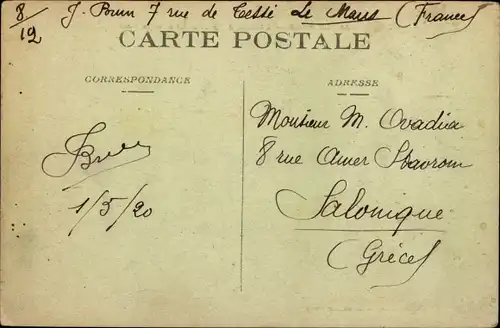 8/12 J. Brun 7 rue de Tessé Le Mans (France)
CARTE POSTALE
CORRESPONDANCE
ADRESSE
JBrun
1/5/20
Monsieur M. Ovadia
8 rue Amer Stavrom
Salonique
(Grèce)